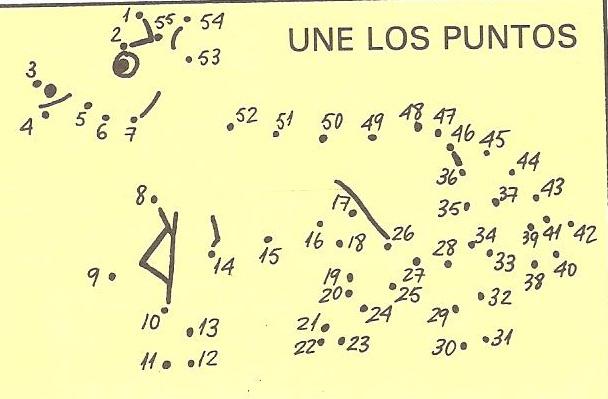 UNE LOS PUNTOS
1
55
54
2
53
3
4
5
6
7
52
51
50
49
48
47
46
45
44
36
37
43
35
8
17
16
18
26
34
39
41
42
14
15
28
33
9
27
38
40
19
20
25
32
10
13
24
29
21
22
23
30
31
11
12